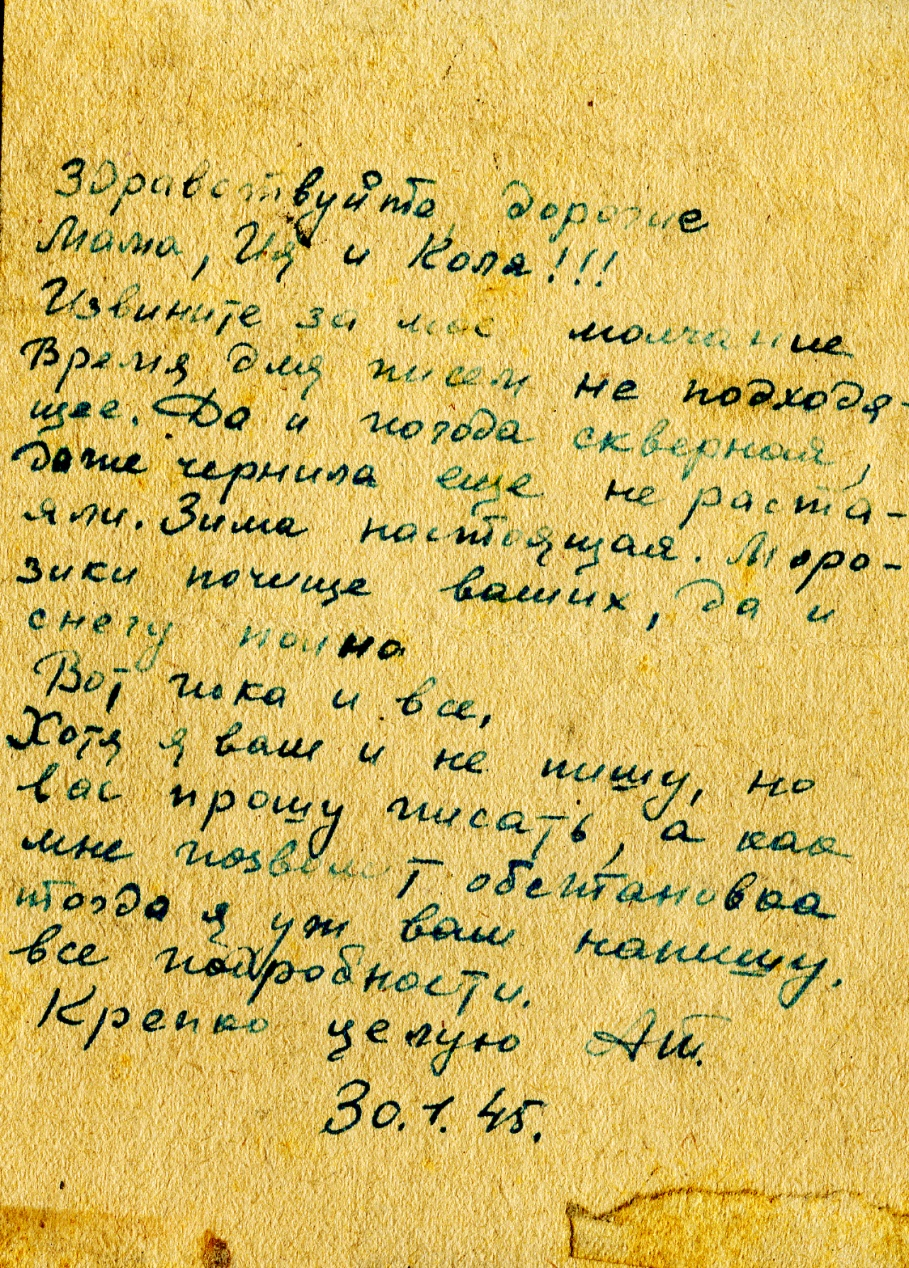 Здравствуйте, дорогие
Мама, Ия и Коля!!!
Извините за мое молчание
Время для писем не подходя-
щее. Да и погода скверная,
даже чернила еще не раста-
яли. Зима настоящая. Моро-
зики почище ваших, да и
снегу полно
Вот пока и все,
Хотя я вам и не пишу, но
вас прошу писать, а как
мне позволит обстановка
тогда я уж вам напишу.
все подробности.
Крепко целую АТ.
30.1.45.